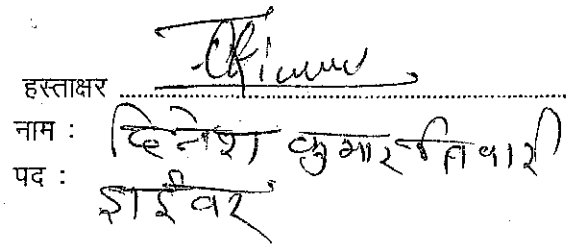 हस्ताक्षर
नाम : दिनेश कुमार तिवारी
पद : ड्राईवर